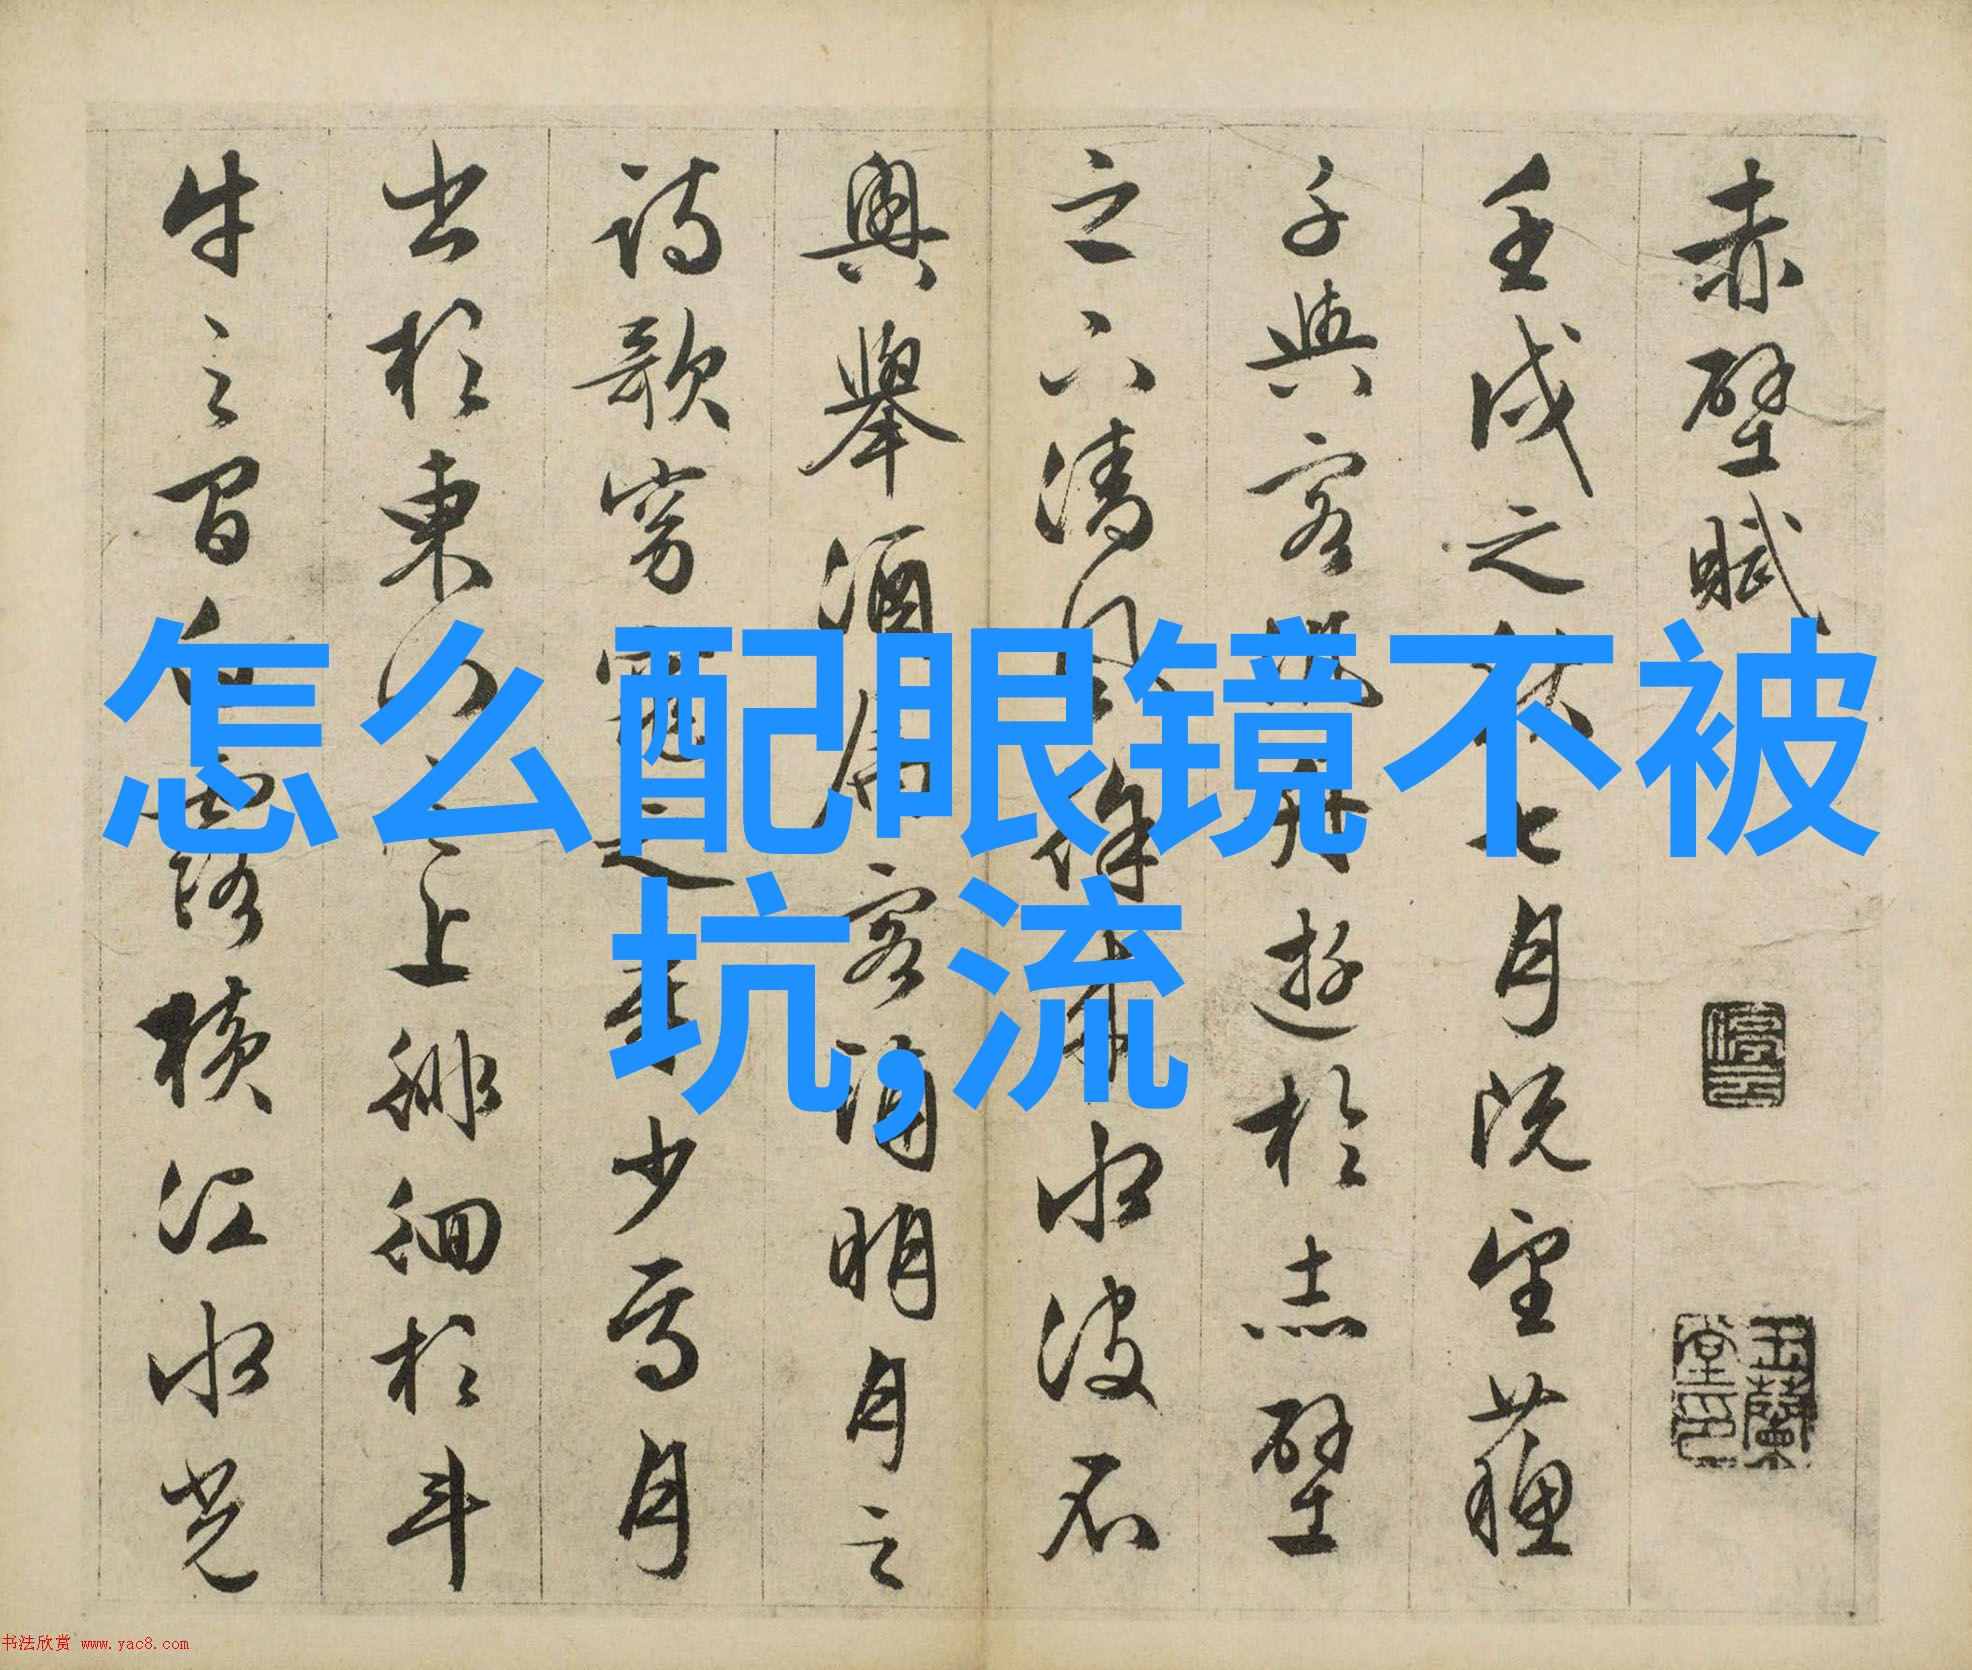 怎么配眼镜不被
坑,流
赤壁賦
壬戌之秋七月既望蘇
子與客泛舟遊於赤壁
之下清風徐來水波不
興舉酒屬客誦明月之
詩歌窈窕之章少焉月
出於東山之上徘徊於斗
牛之間白露橫江水光
停雲
玉蘭堂印
书法欣赏 www.yac8.com